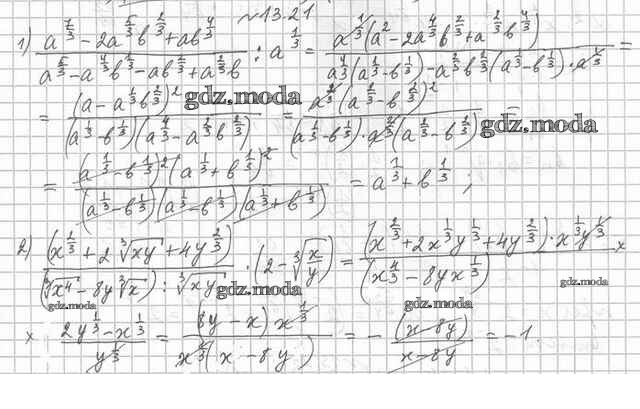 №13.21
1) (a^{7/3} - 2a^{5/3}b^{2/3} + ab^{4/3}) / (a^{5/3} - a^{4/3}b^{1/3} - ab^{2/3} + a^{2/3}b) : a^{1/3} = a^{1/3}(a^2 - 2a^{4/3}b^{2/3} + a^{2/3}b^{4/3}) / (a^{4/3}(a^{1/3} - b^{1/3}) - a^{2/3}b^{2/3}(a^{1/3} - b^{1/3}) · a^{1/3}) =
= (a - a^{1/3}b^{2/3})^2 / ((a^{1/3} - b^{1/3})(a^{4/3} - a^{2/3}b^{2/3})) = a^{2/3}(a^{2/3} - b^{2/3})^2 / ((a^{1/3} - b^{1/3}) · a^{2/3}(a^{2/3} - b^{2/3})) =
gdz.moda
gdz.moda
= (a^{1/3} - b^{1/3})^2(a^{1/3} + b^{1/3})^2 / ((a^{1/3} - b^{1/3})(a^{1/3} - b^{1/3})(a^{1/3} + b^{1/3})) = a^{1/3} + b^{1/3};
2) (x^{2/3} + 2∛xy + 4y^{2/3}) / ((∛x4 - 8y∛x) : ∛xy) · (2 - ∛(x/y)) = (x^{2/3} + 2x^{1/3}y^{1/3} + 4y^{2/3}) · x^{1/3}y^{1/3} / (x^{4/3} - 8yx^{1/3}) ×
gdz.moda
gdz.moda
gdz.moda
gdz.moda
× (2y^{1/3} - x^{1/3}) / y^{1/3} = (8y - x) x^{1/3} / (x^{1/3}(x - 8y)) = - (x - 8y) / (x - 8y) = -1.